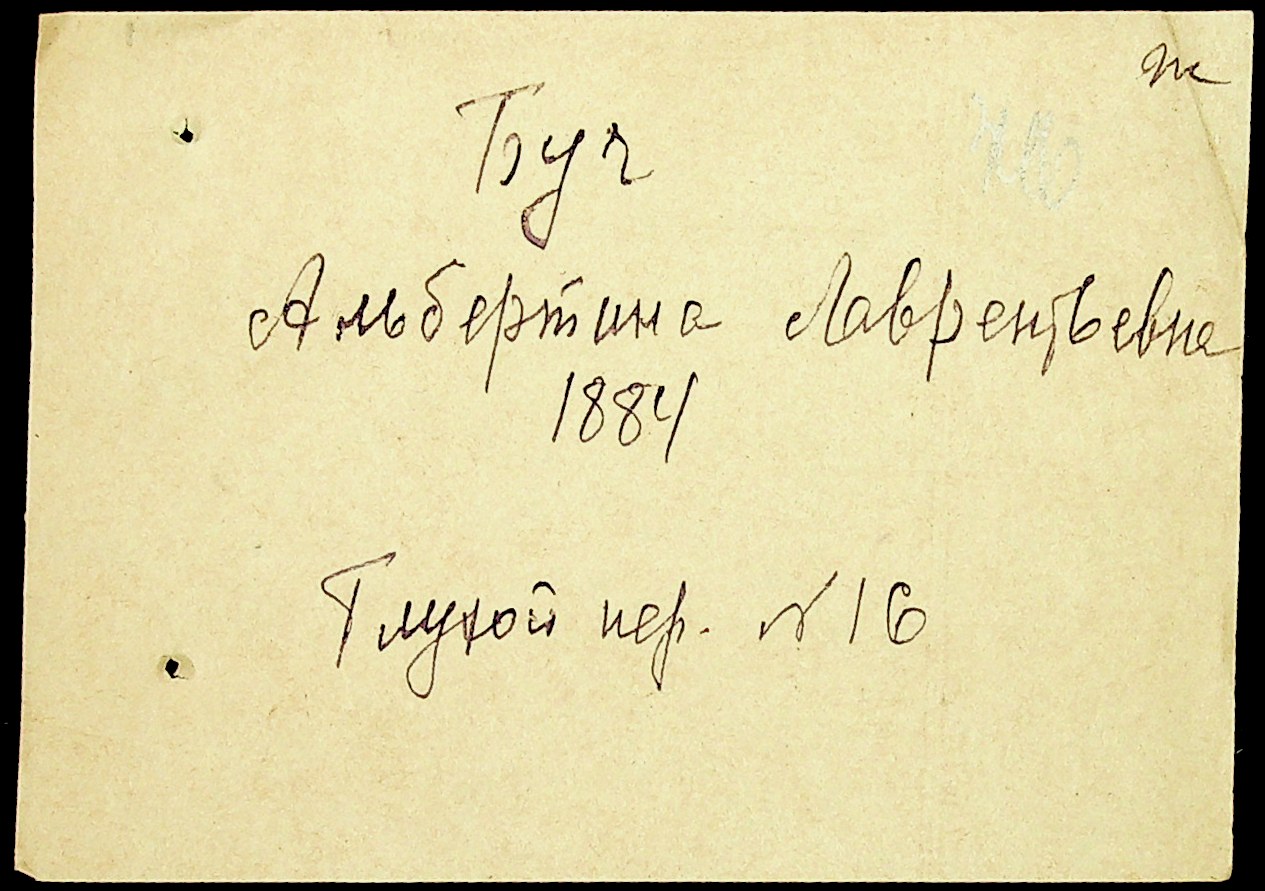 Буч
Альбертина Лаврентьевна
1884
Глухой пер. № 16